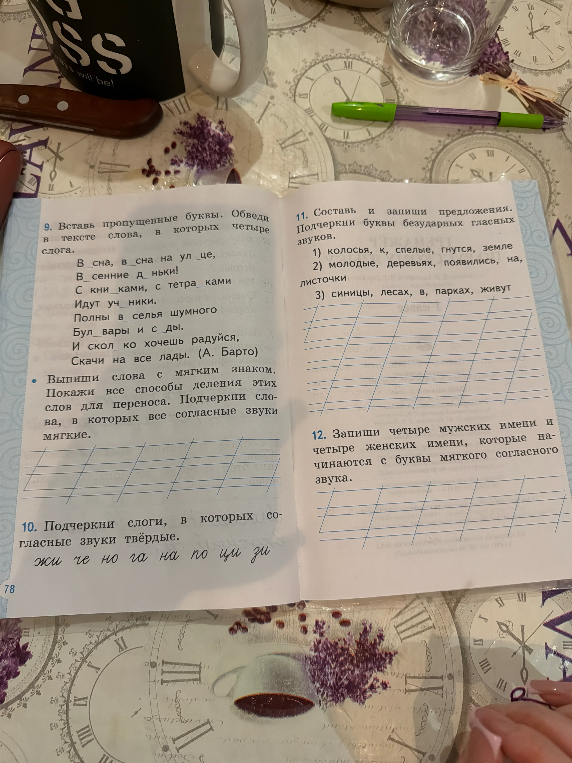 SS
will be!
9. Вставь пропущенные буквы. Обведи
в тексте слова, в которых четыре
слога.
В_сна, в_сна на ул_це,
В_сенние д_ньки!
С кни_ками, с тетра_ками
Идут уч_ники.
Полны в_селья шумного
Бул_вары и с_ды.
И скол_ко хочешь радуйся,
Скачи на все лады. (А. Барто)
• Выпиши слова с мягким знаком.
Покажи все способы деления этих
слов для переноса. Подчеркни сло-
ва, в которых все согласные звуки
мягкие.
10. Подчеркни слоги, в которых со-
гласные звуки твёрдые.
жи че но га на по ци зи
78
11. Составь и запиши предложения.
Подчеркни буквы безударных гласных
звуков.
1) колосья, к, спелые, гнутся, земле
2) молодые, деревьях, появились, на,
листочки
3) синицы, лесах, в, парках, живут
12. Запиши четыре мужских имени и
четыре женских имени, которые на-
чинаются с буквы мягкого согласного
звука.